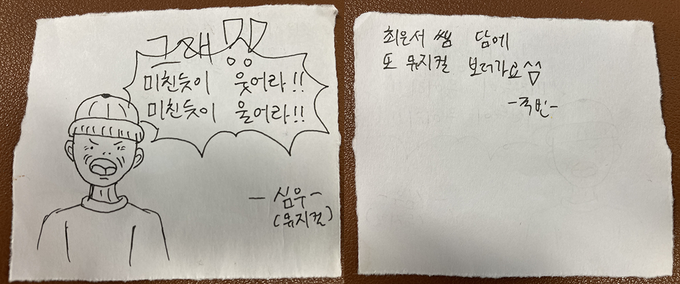 그때 밍
미친듯이 웃어라!!
미친듯이 울어라!!
- 심우 -
(뮤지컬)
최은서 쌤 담에
또 뮤지컬 보러가요^^
- 국빈 -